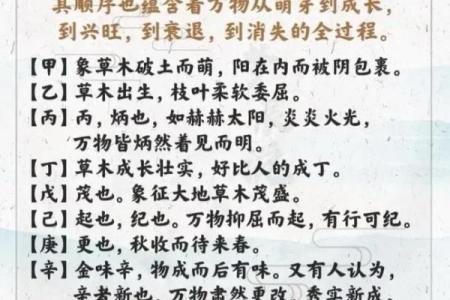 其顺序也蕴含着万物从萌芽到成长，
到兴旺，到衰退，到消失的全过程。
【甲】象草木破土而萌，阳在内而被阴包裹。
【乙】草木出生，枝叶柔软委屈。
【丙】丙，炳也，如赫赫太阳，炎炎火光，
万物皆炳然着见而明。
【丁】草木成长壮实，好比人的成丁。
【戊】茂也。象征大地草木茂盛。
【己】起也，纪也。万物抑屈而起，有行可纪。
【庚】更也，秋收而待来春。
【辛】金味辛，物成而后有味。又有人认为，
辛者新也，万物肃然更改，秀实新成。